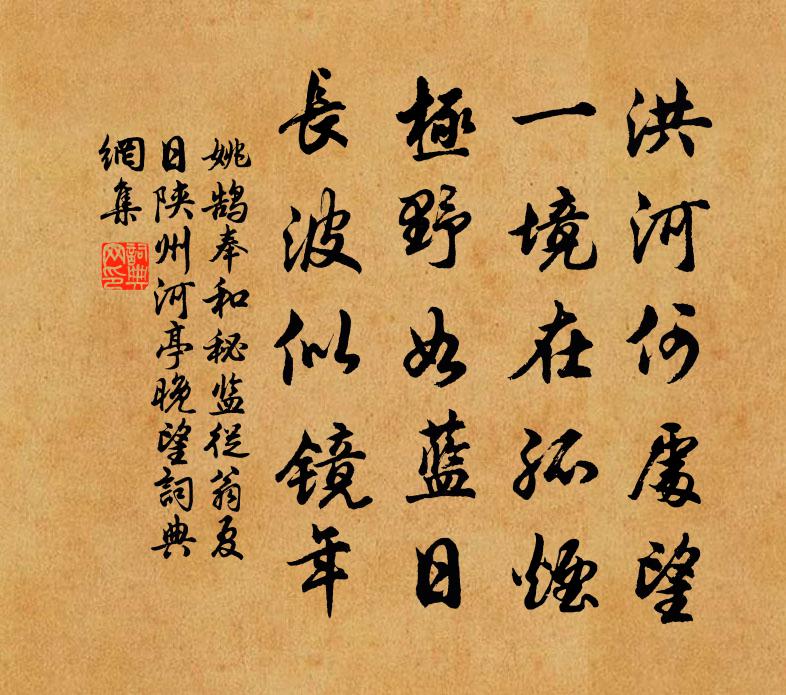 洪河何處望
一境在孤煙
極野如藍日
長波似鏡年
姚鵠奉和秘监從翁夏
日陝州河亭晚望詞典
網集
詞典網印